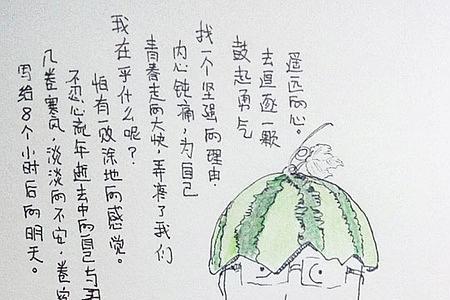 写给8个小时后的明天。
几卷寒风,淡淡的不安,卷
不忍心流年逝去中的自己与
怕有一败涂地的感觉。
我在乎什么呢?
青春走的太快,弄疼了我们
内心钝痛,为自己
找一个坚强的理由.
鼓起勇气
去追逐一颗
遥远的心。